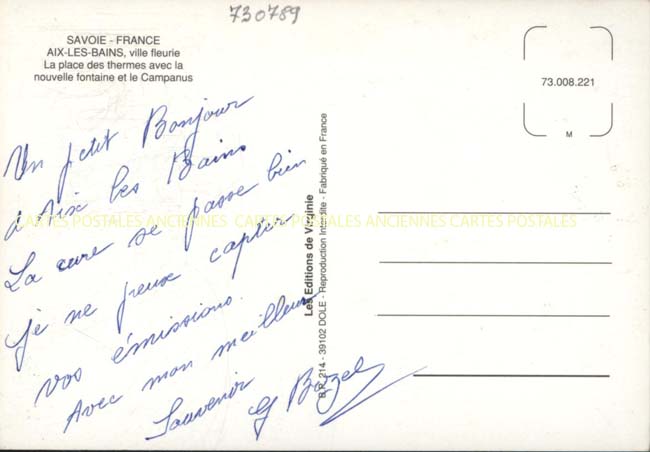 730789
SAVOIE - FRANCE
AIX-LES-BAINS, ville fleurie
La place des thermes avec la
nouvelle fontaine et le Campanus
73.008.221
M
Un petit Bonjour
à Aix les Bains
La cure se passe bien
je ne peux capter
vos émissions.
Avec mon meilleur
Souvenir
G
Les Editions de Virginie
B.P. 214 - 39102 DOLE - Reproduction Interdite - Fabriqué en France
CARTES POSTALES ANCIENNES CARTES POSTALES ANCIENNES CARTES POSTALES